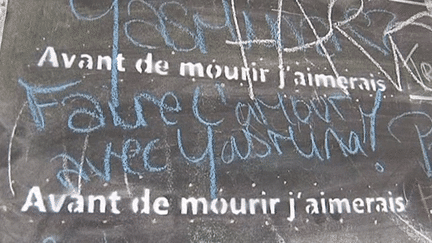 Avant de mourir j'aimerais
Faire l'amour
avec Yasmina!
Avant de mourir j'aimerais